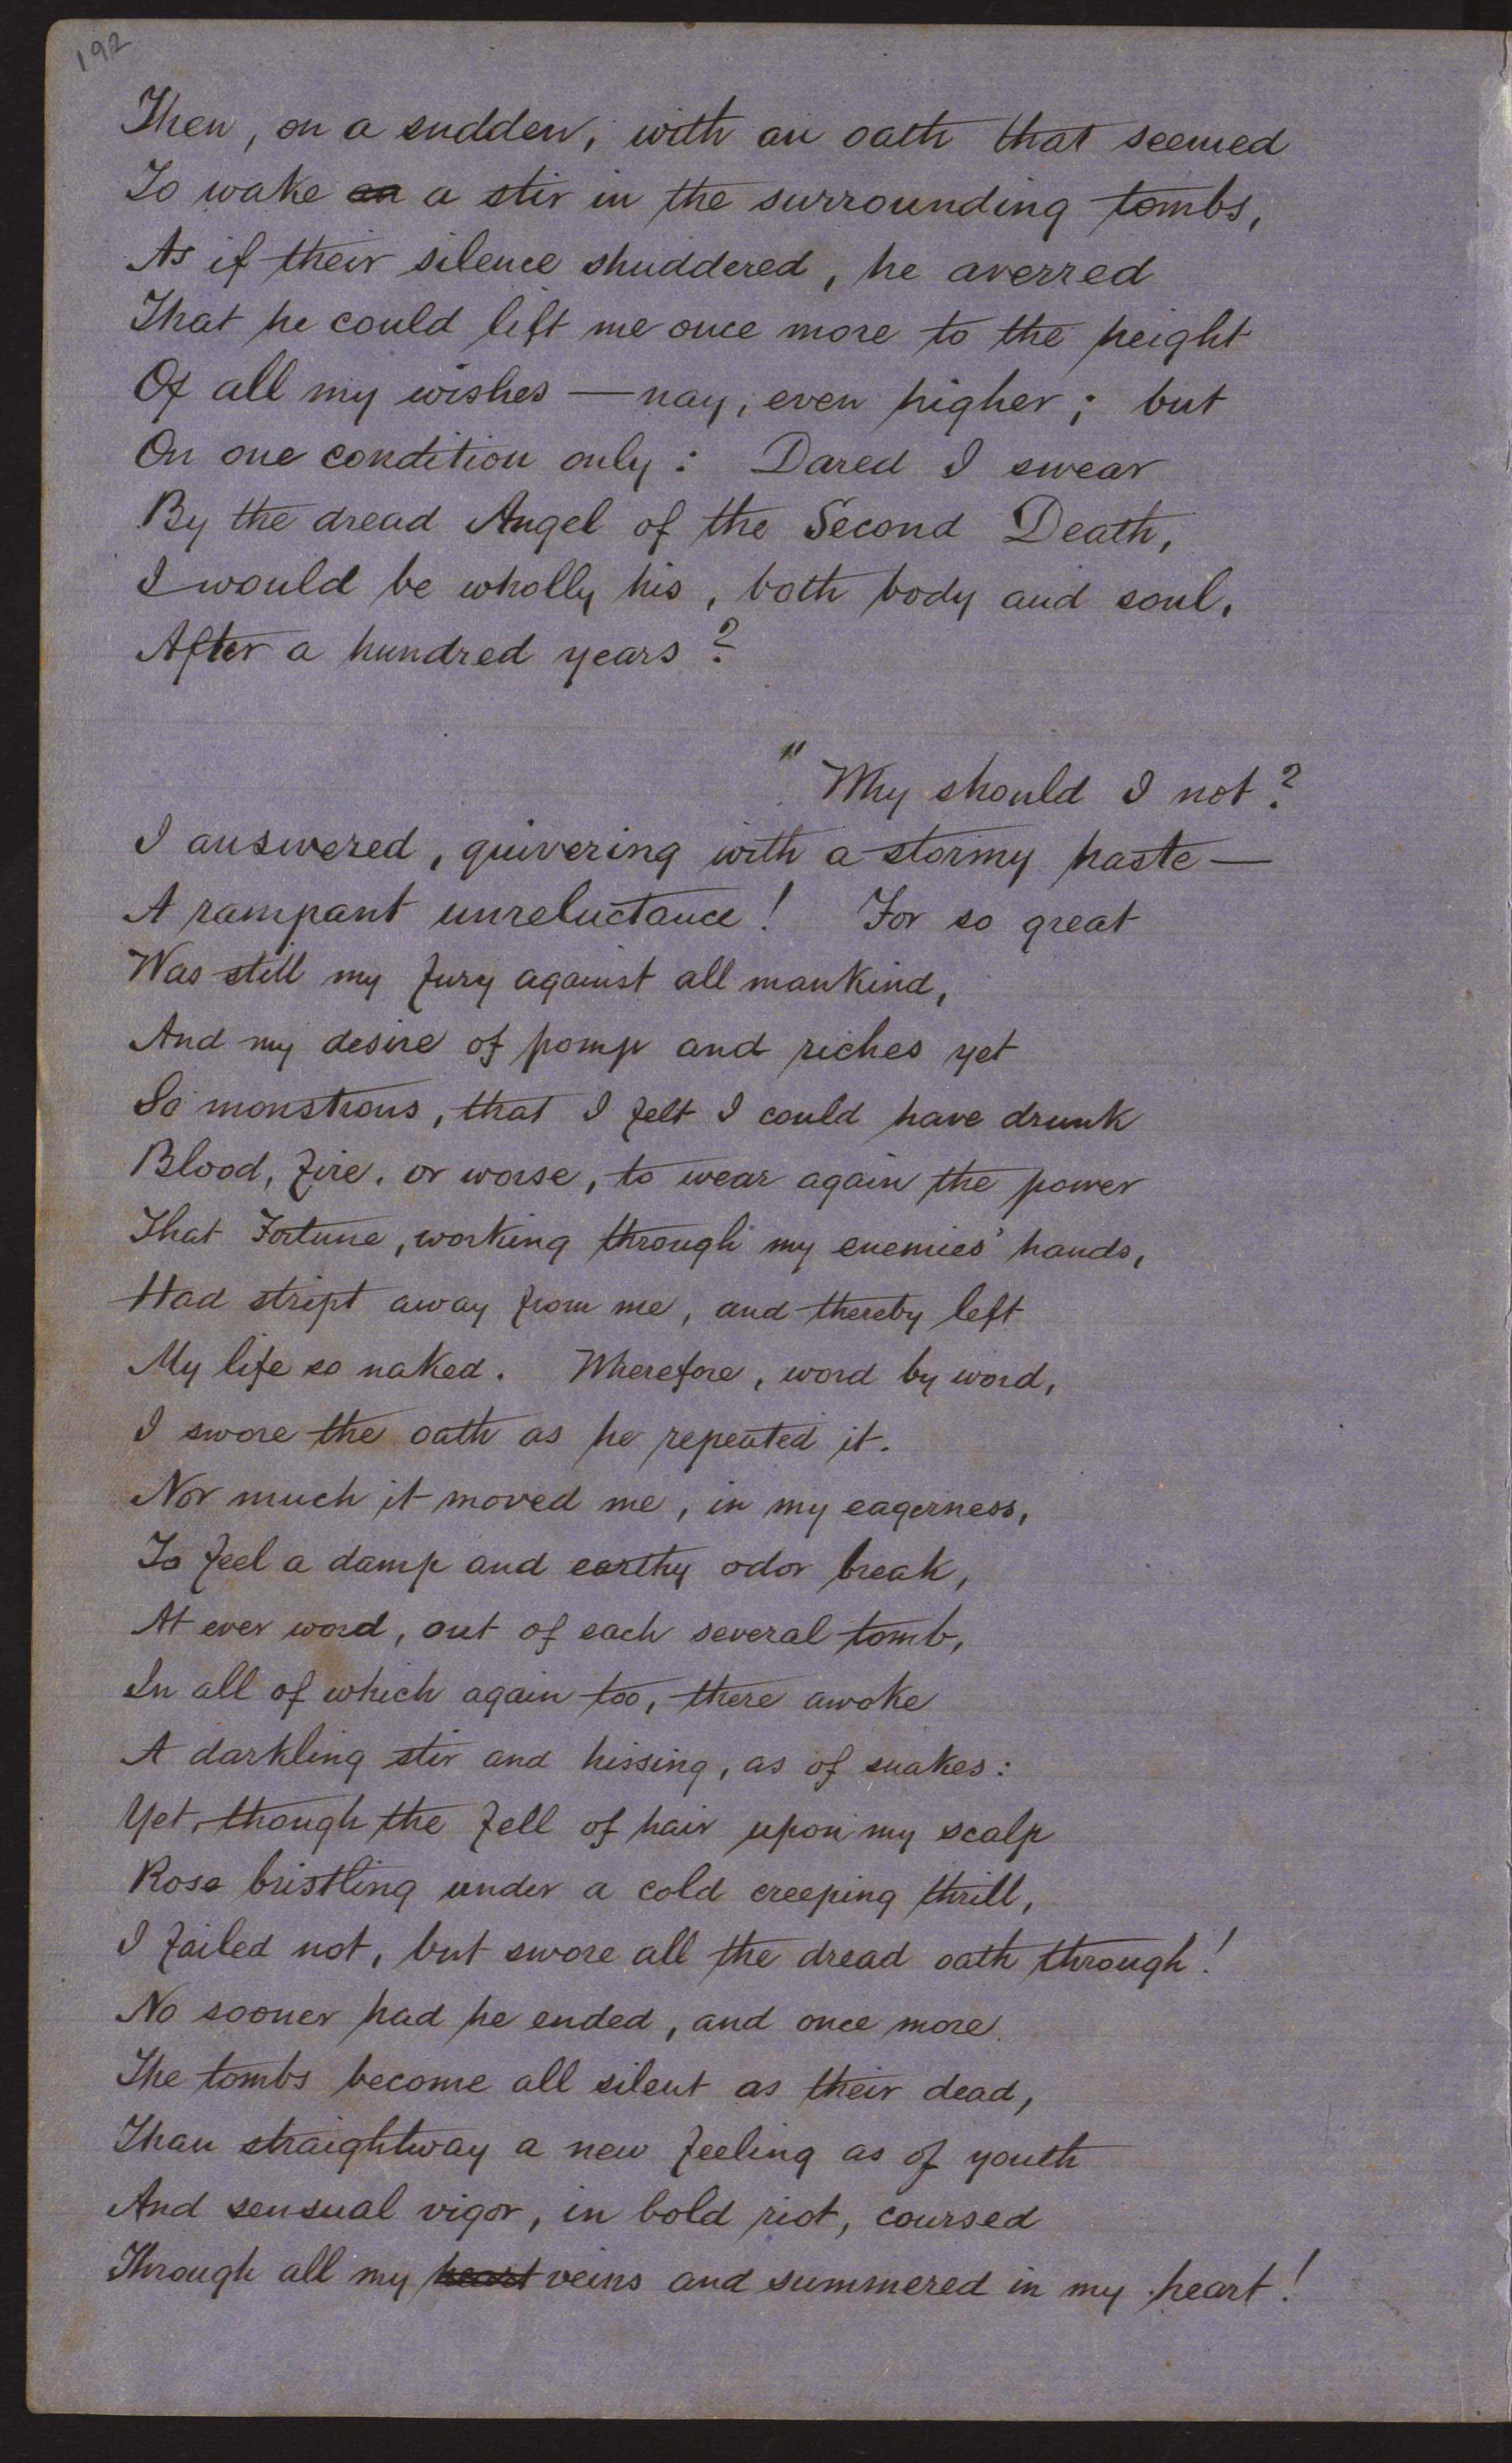 192
Then, on a sudden, with an oath that seemed
To wake a stir in the surrounding tombs,
As if their silence shuddered, he averred
That he could lift me once more to the height
Of all my wishes — nay, even higher; but
On one condition only: Dared I swear
By the dread Angel of the Second Death,
I would be wholly his, both body and soul,
After a hundred years?
"Why should I not?
I answered, quivering with a stormy haste —
A rampant unreluctance! For so great
Was still my fury against all mankind,
And my desire of pomp and riches yet
So monstrous, that I felt I could have drunk
Blood, fire, or worse, to wear again the power
That Fortune, working through my enemies' hands,
Had stript away from me, and thereby left
My life so naked. Wherefore, word by word,
I swore the oath as he repeated it.
Nor much it moved me, in my eagerness,
To feel a damp and earthy odor break,
At ever word, out of each several tomb,
In all of which again too, there awoke
A darkling stir and hissing, as of snakes:
Yet, though the fell of hair upon my scalp
Rose bristling under a cold creeping thrill,
I failed not, but swore all the dread oath through!
No sooner had he ended, and once more
The tombs become all silent as their dead,
Than straightway a new feeling as of youth
And sensual vigor, in bold riot, coursed
Through all my heart veins and summered in my heart!